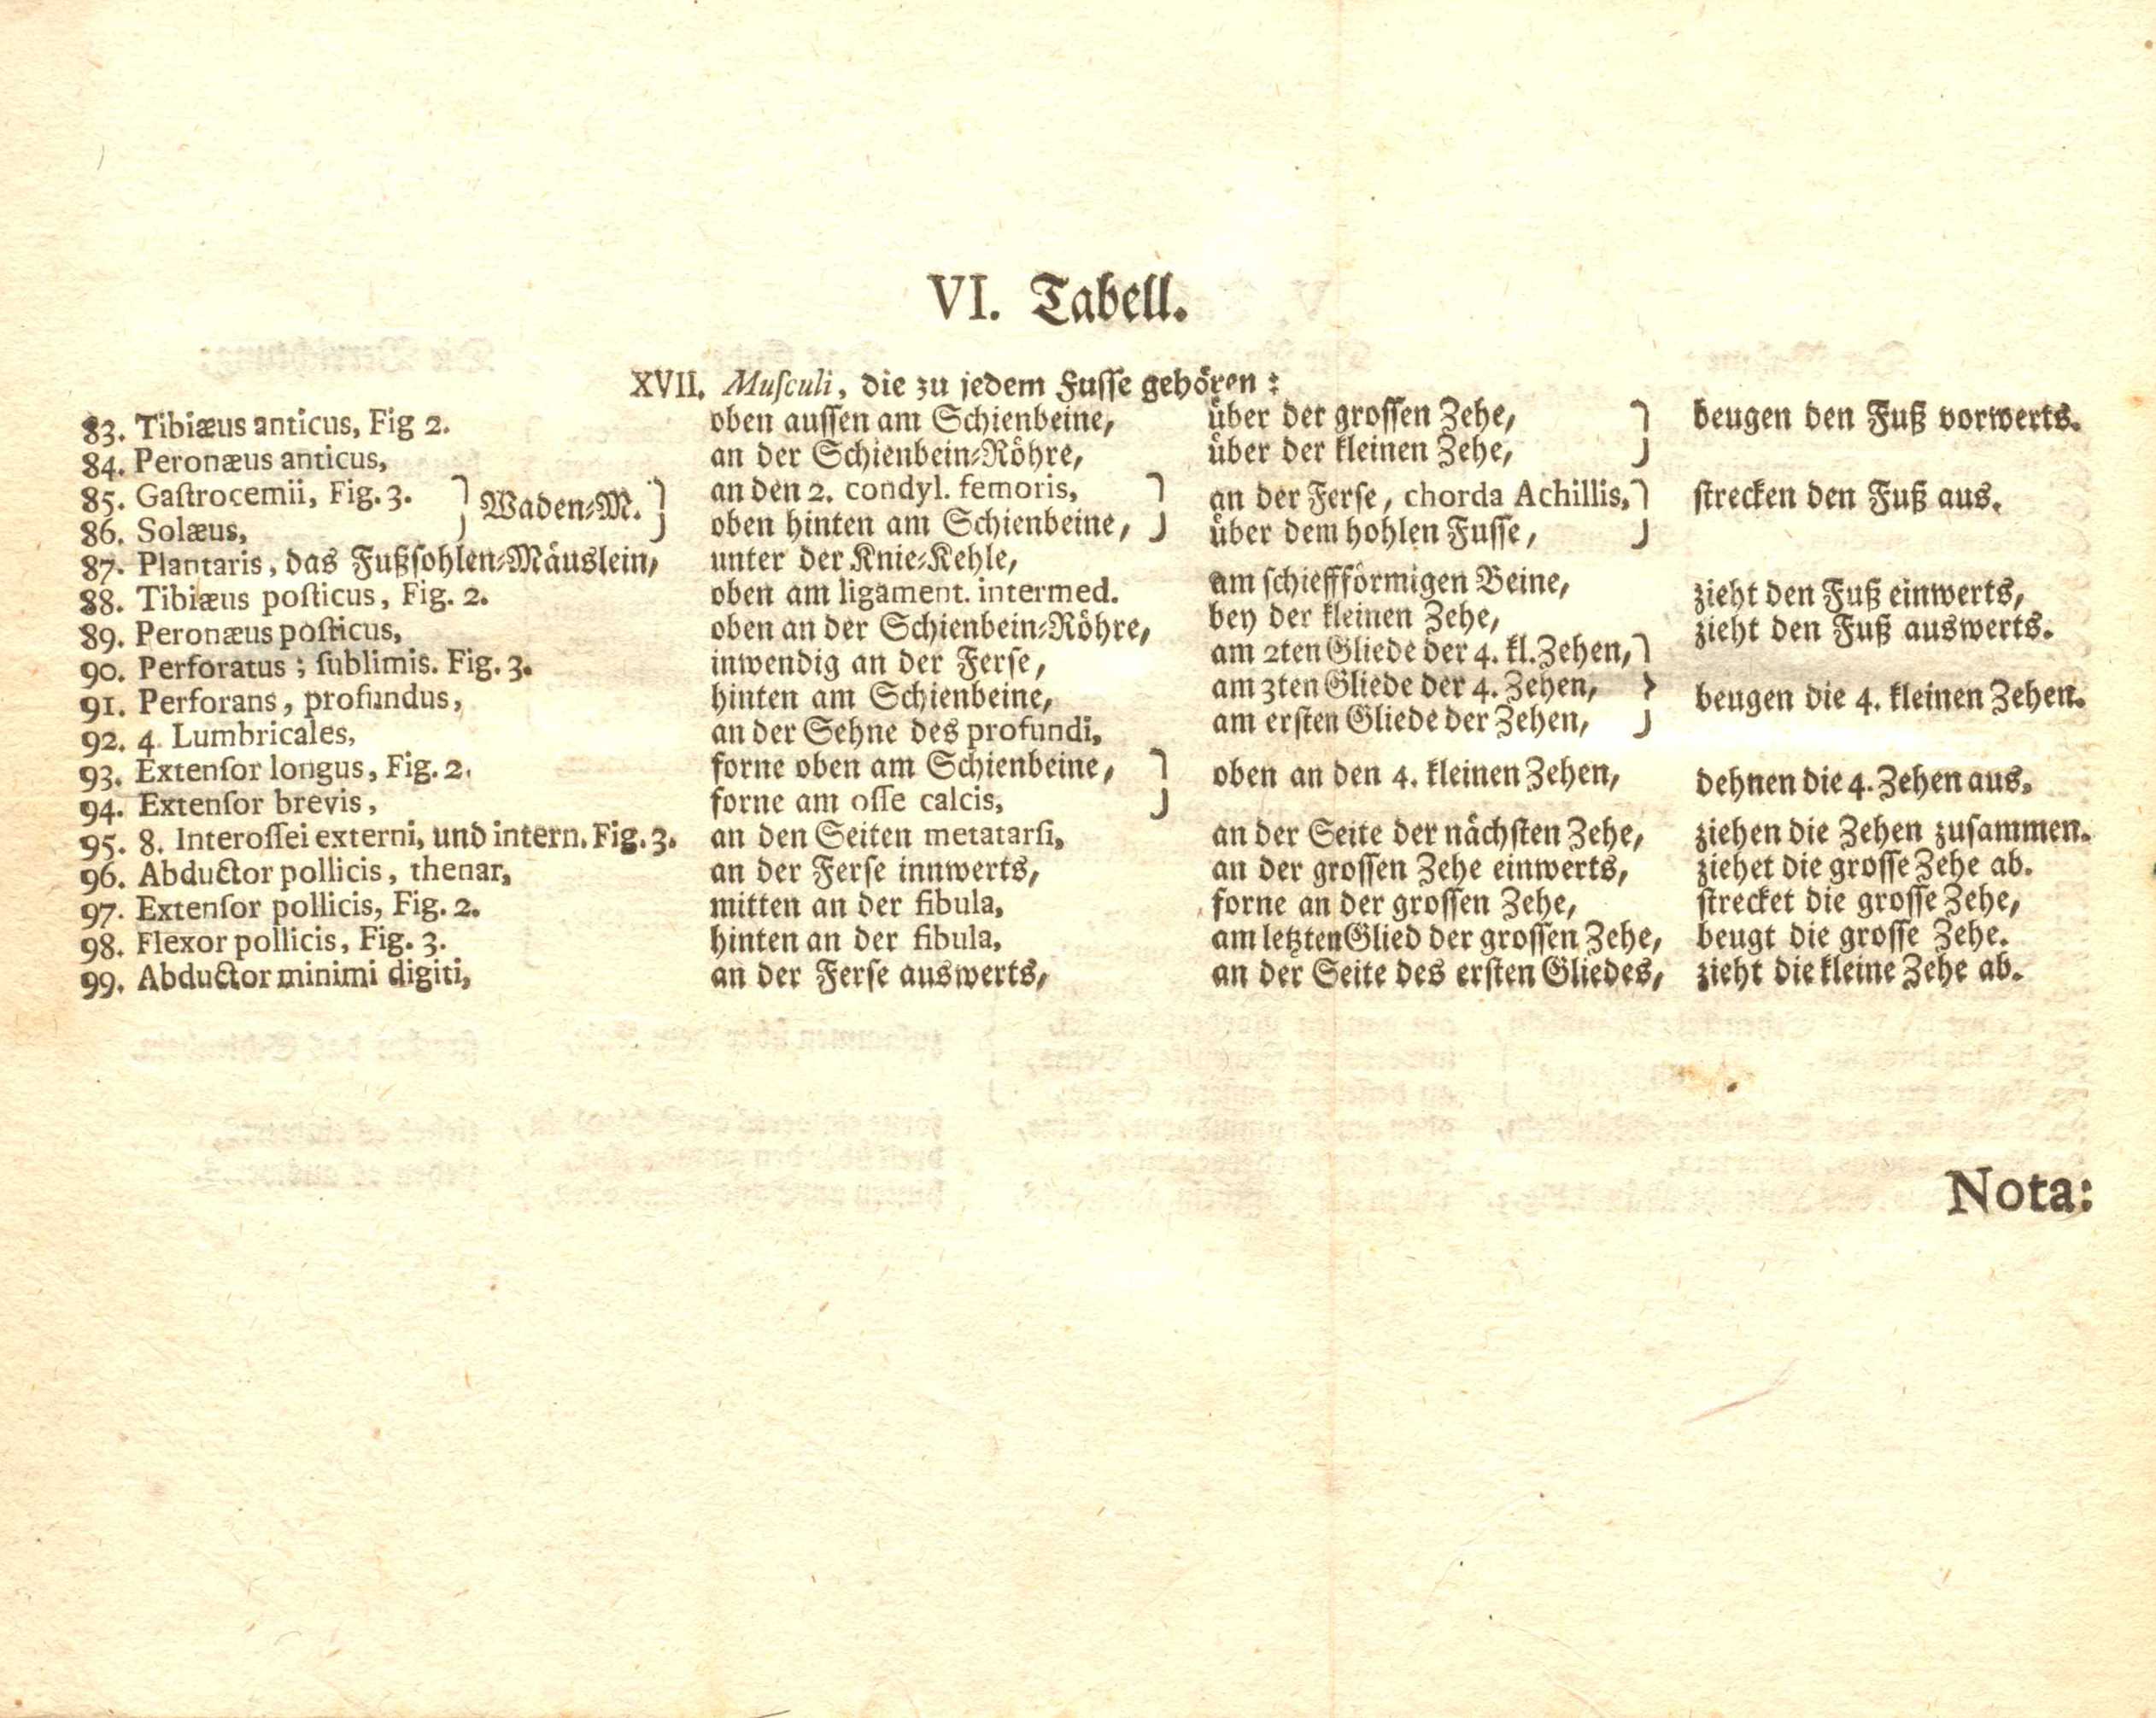 VI. Tabell.
XVII. Muſculi, die zu jedem Fuſſe gehören:
83. Tibiæus anticus, Fig 2. oben auſſen am Schienbeine, über der groſſen Zehe, } beugen den Fuß vorwerts.
84. Peronæus anticus, an der Schienbein⸗Röhre, über der kleinen Zehe,
85. Gaſtrocemii, Fig. 3. } Waden⸗M. } an den 2. condyl. femoris, } an der Ferſe, chorda Achillis, } ſtrecken den Fuß aus.
86. Solæus, oben hinten am Schienbeine, über dem hohlen Fuſſe,
87. Plantaris, das Fußſohlen⸗Mäuslein, unter der Knie⸗Kehle,
88. Tibiæus poſticus, Fig. 2. oben am ligament. intermed. am ſchieffförmigen Beine, zieht den Fuß einwerts,
89. Peronæus poſticus, oben an der Schienbein⸗Röhre, bey der kleinen Zehe, zieht den Fuß auswerts.
90. Perforatus; ſublimis. Fig. 3. inwendig an der Ferſe, am 2ten Gliede der 4. kl. Zehen,
91. Perforans, profundus, hinten am Schienbeine, am 3ten Gliede der 4. Zehen, } beugen die 4. kleinen Zehen.
92. 4. Lumbricales, an der Sehne des profundi, am erſten Gliede der Zehen,
93. Extenſor longus, Fig. 2. forne oben am Schienbeine, } oben an den 4. kleinen Zehen, dehnen die 4. Zehen aus.
94. Extenſor brevis, forne am oſſe calcis,
95. 8. Interoſſei externi, und intern. Fig. 3. an den Seiten metatarſi, an der Seite der nächſten Zehe, ziehen die Zehen zuſammen.
96. Abductor pollicis, thenar, an der Ferſe innwerts, an der groſſen Zehe einwerts, ziehet die groſſe Zehe ab.
97. Extenſor pollicis, Fig. 2. mitten an der fibula, forne an der groſſen Zehe, ſtrecket die groſſe Zehe,
98. Flexor pollicis, Fig. 3. hinten an der fibula, am letzten Glied der groſſen Zehe, beugt die groſſe Zehe.
99. Abductor minimi digiti, an der Ferſe auswerts, an der Seite des erſten Gliedes, zieht die kleine Zehe ab.
Nota: